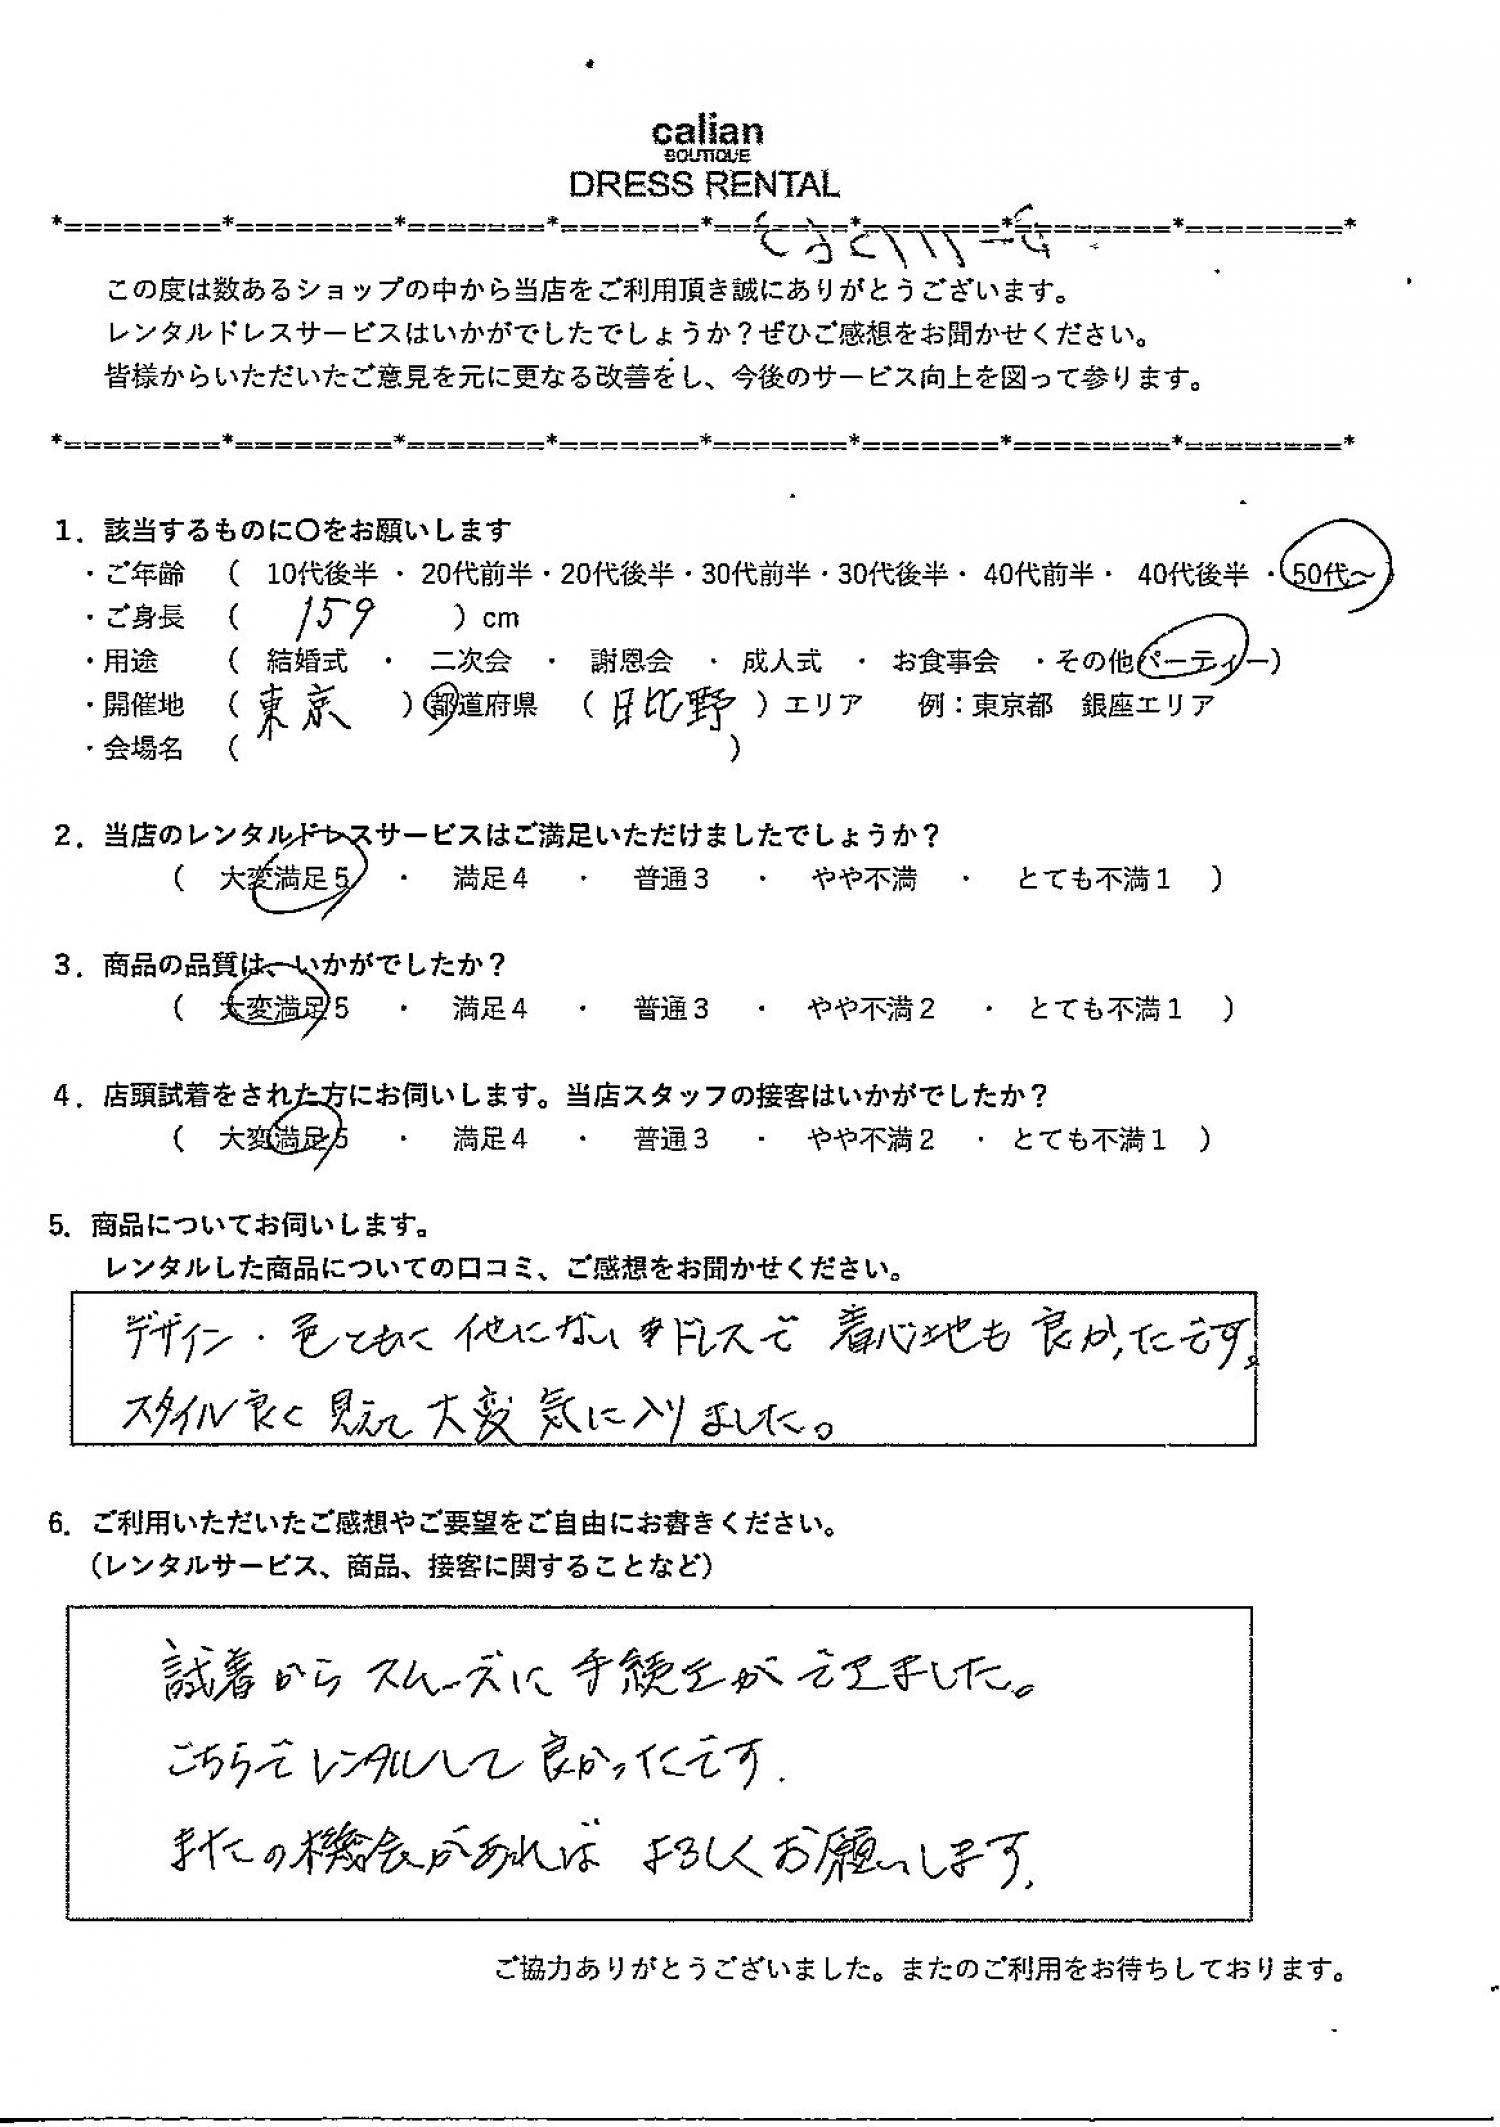 calian
BOUTIQUE
DRESS RENTAL
*========*========*=======*=======*=======*=======*========*========*
この度は数あるショップの中から当店をご利用頂き誠にありがとうございます。
レンタルドレスサービスはいかがでしたでしょうか？ぜひご感想をお聞かせください。
皆様からいただいたご意見を元に更なる改善をし、今後のサービス向上を図って参ります。
*========*========*=======*=======*=======*=======*========*========*
1．該当するものに〇をお願いします
・ご年齢 （ 10代後半 ・ 20代前半・20代後半・30代前半・30代後半・ 40代前半・ 40代後半 ・50代～）
・ご身長 （ 159 ）cm
・用途 （ 結婚式 ・ 二次会 ・ 謝恩会 ・ 成人式 ・ お食事会 ・その他パーティー）
・開催地 （ 東京 ）都道府県 （ 日比野 ）エリア 例：東京都 銀座エリア
・会場名 （ ）
2．当店のレンタルドレスサービスはご満足いただけましたでしょうか？
（ 大変満足5 ・ 満足4 ・ 普通3 ・ やや不満 ・ とても不満1 ）
3．商品の品質は、いかがでしたか？
（ 大変満足5 ・ 満足4 ・ 普通3 ・ やや不満2 ・ とても不満1 ）
4．店頭試着をされた方にお伺いします。当店スタッフの接客はいかがでしたか？
（ 大変満足5 ・ 満足4 ・ 普通3 ・ やや不満2 ・ とても不満1 ）
5．商品についてお伺いします。
レンタルした商品についての口コミ、ご感想をお聞かせください。
デザイン・色ともに他にないドレスで着心地も良かったです。
スタイル良く見えて大変気に入りました。
6．ご利用いただいたご感想やご要望をご自由にお書きください。
（レンタルサービス、商品、接客に関することなど）
試着からスムーズに手続きができました。
こちらでレンタルして良かったです.
またの機会があればよろしくお願いします.
ご協力ありがとうございました。またのご利用をお待ちしております。